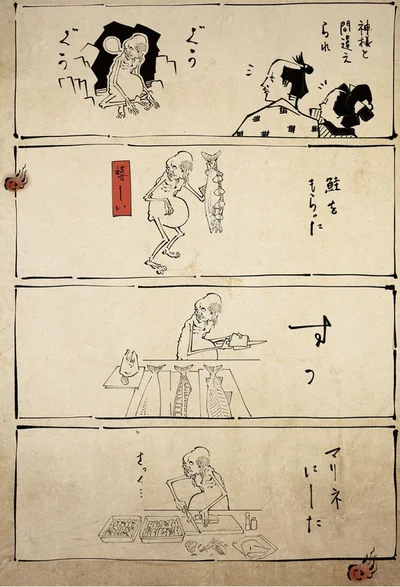 神様と
間違え
られ
ぐぅ
ぐぅ
鮭を
もらった
嬉しい
すっ
マリネ
にした
さっく…